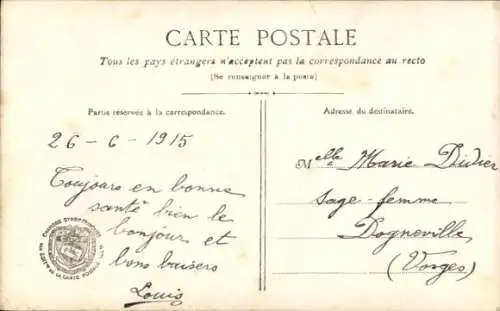 CARTE POSTALE
Tous les pays étrangers n'acceptent pas la correspondance au recto
(Se renseigner à la poste)
Partie réservée à la correspondance.
Adresse du destinataire.
26-6-1915
Toujours en bonne
santé bien le
bonjour et
bons baisers
Louis
Melle Marie Didier
Sage-femme
Dogneville
(Vosges)